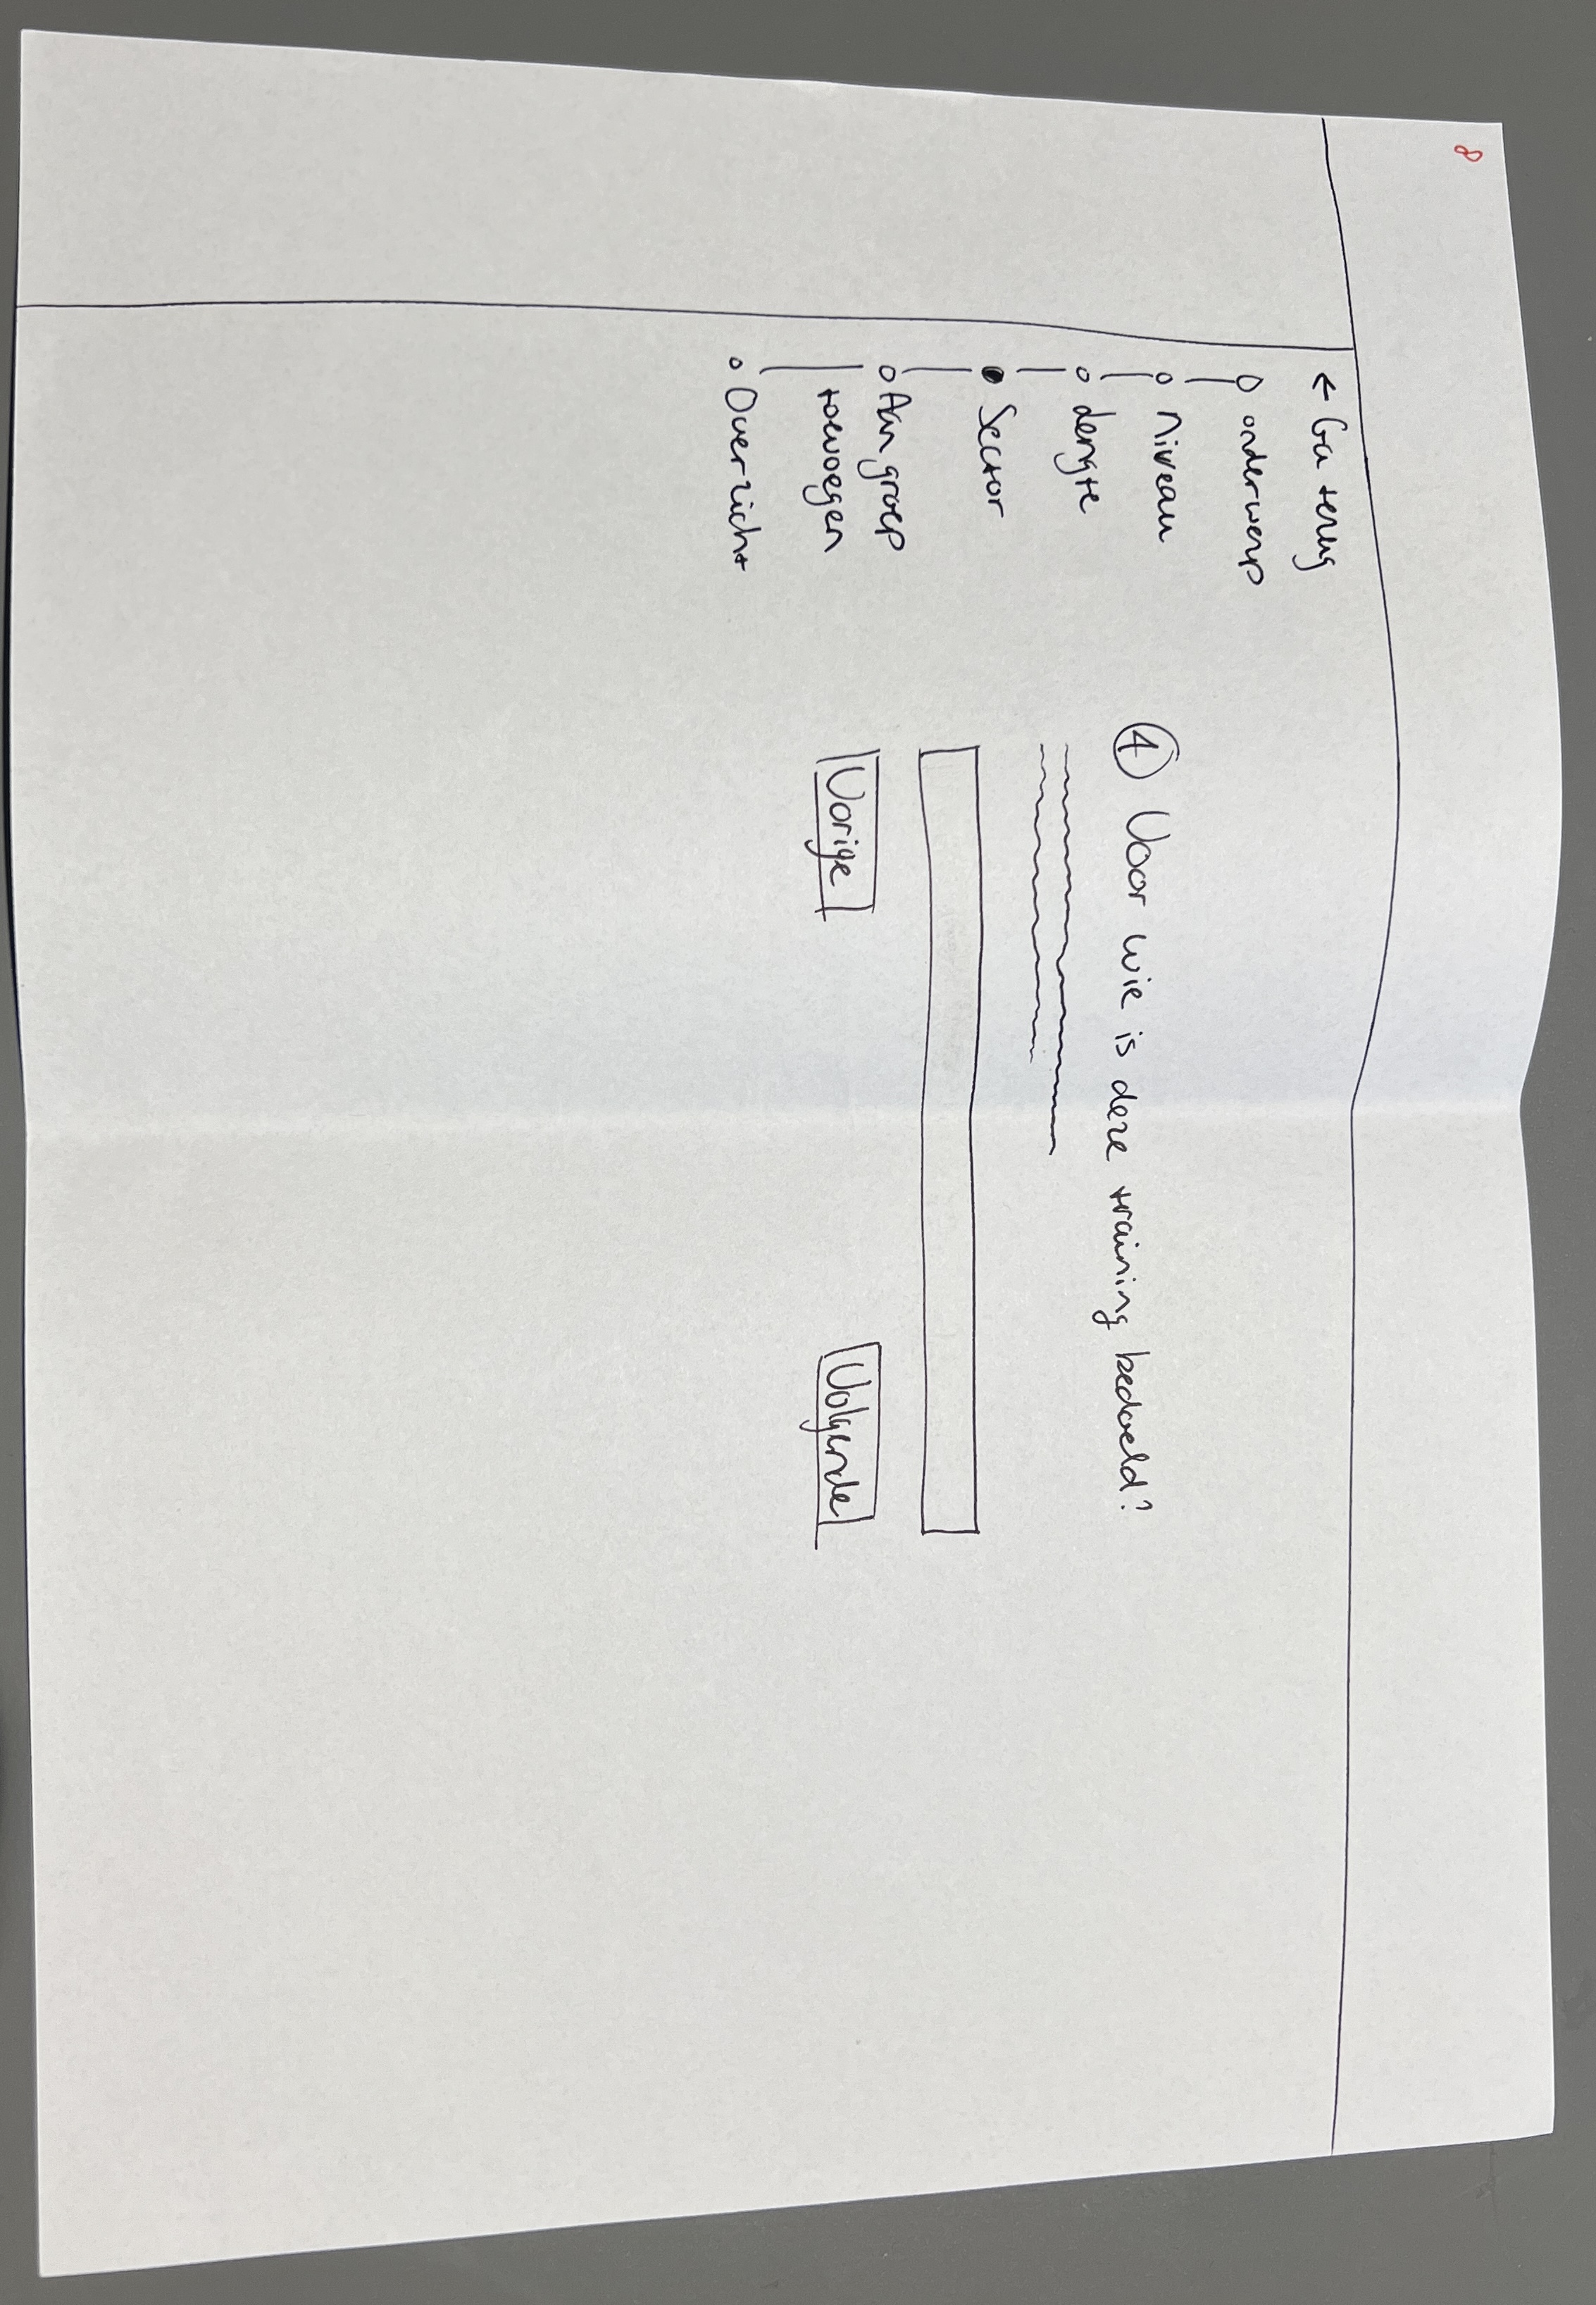 8
← Ga terug
onderwerp
Niveau
Lengte
Sector
Aan groep
toevoegen
Overzicht
④ Voor wie is deze training bedoeld?
Vorige
Volgende